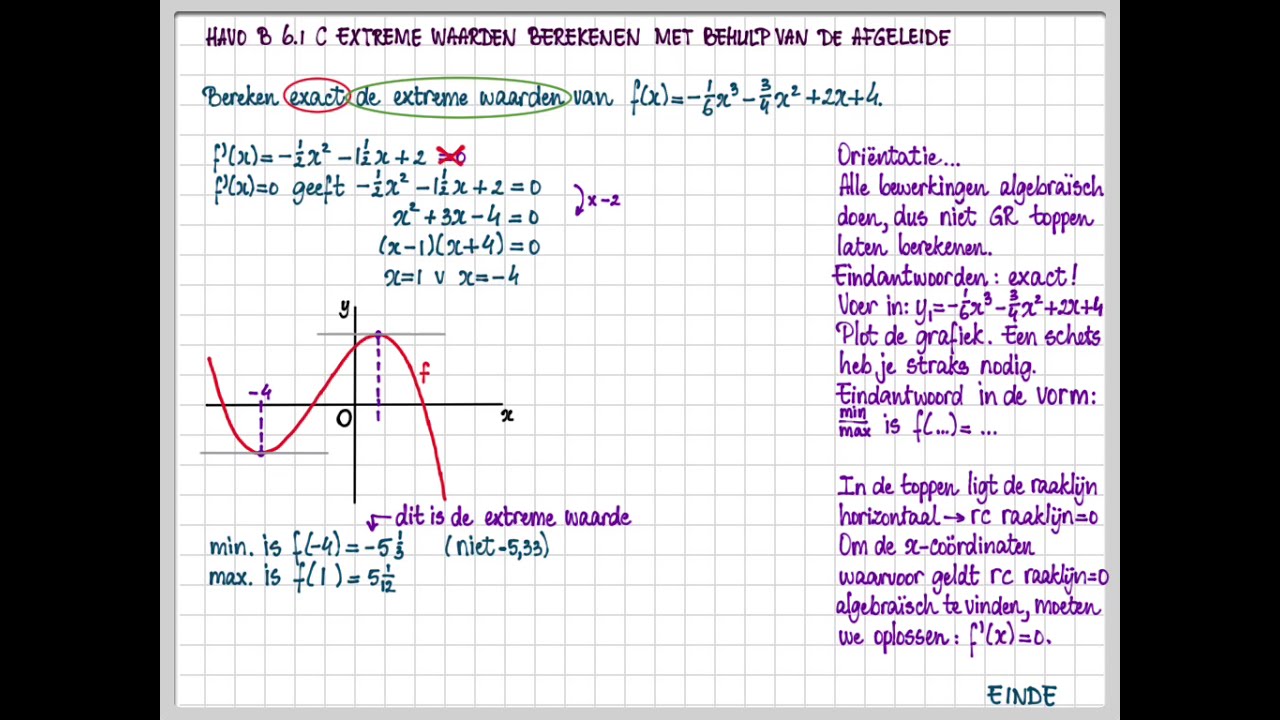 HAVO B 6.1 C EXTREME WAARDEN BEREKENEN MET BEHULP VAN DE AFGELEIDE
Bereken exact de extreme waarden van f(x)=-1/6x³-3/4x²+2x+4.
f'(x)=-1/2x²-1 1/2x+2 =0
f'(x)=0 geeft -1/2x²-1 1/2x+2=0
x-2
x²+3x-4=0
(x-1)(x+4)=0
x=1 v x=-4
y
f
-4
O
x
dit is de extreme waarde
min. is f(-4)=-5 1/3 (niet -5,33)
max. is f(1)=5 1/12
Oriëntatie...
Alle bewerkingen algebraïsch
doen, dus niet GR toppen
laten berekenen.
Eindantwoorden: exact!
Voer in: y₁=-1/6x³-3/4x²+2x+4
Plot de grafiek. Een schets
heb je straks nodig.
Eindantwoord in de vorm:
min/max is f(...)=...
In de toppen ligt de raaklijn
horizontaal → rc raaklijn=0
Om de x-coördinaten
waarvoor geldt rc raaklijn=0
algebraïsch te vinden, moeten
we oplossen: f'(x)=0.
EINDE